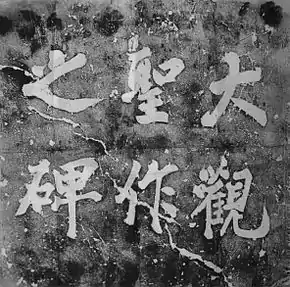 大觀
聖作
之碑